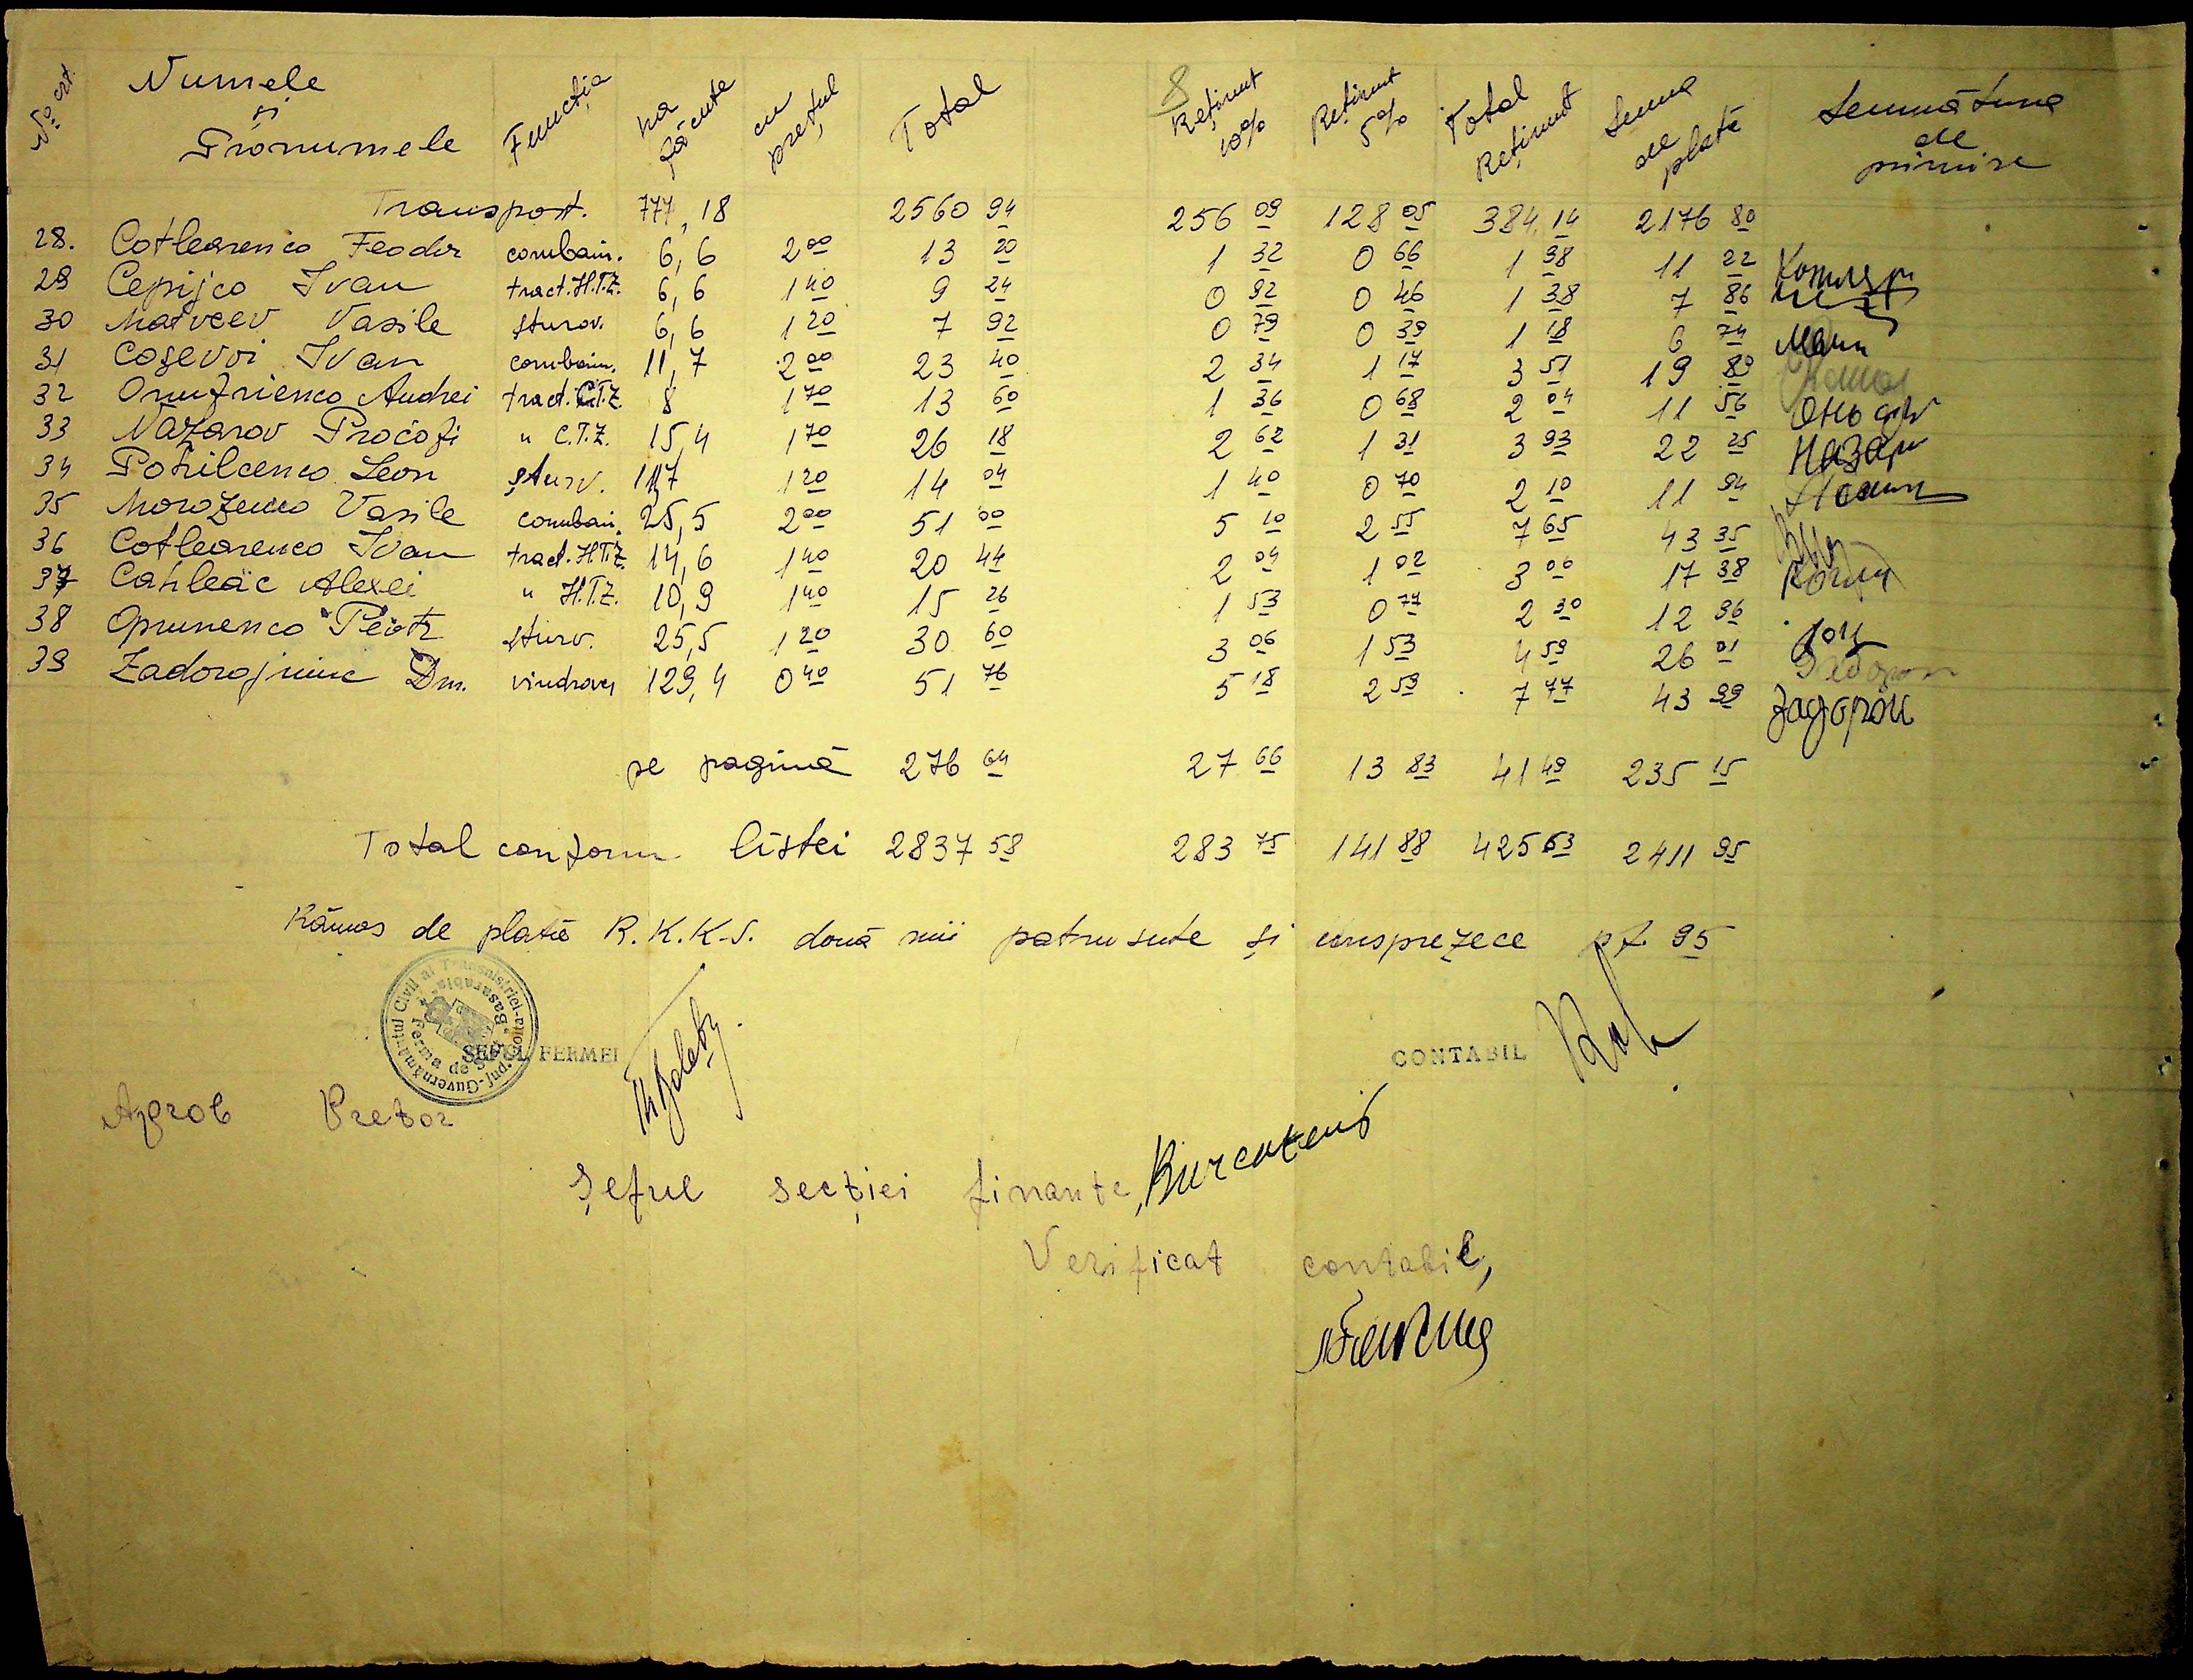 No crt. Numele și Pronumele Funcția ha făcute cu prețul Total Reținut 10% Reținut 5% Total Reținut Suma de plată Semnătura de primire
8
Transport. 777,18 2560 94 256 09 128 05 384,14 2176 80
28. Cotlearenco Feodor combain. 6,6 2 00 13 20 1 32 0 66 1 38 11 22
29 Cepijco Ivan tract. H.T.Z. 6,6 1 40 9 24 0 92 0 46 1 38 7 86
30 Matveev Vasile șturv. 6,6 1 20 7 92 0 79 0 39 1 18 6 74
31 Coșevoi Ivan combain. 11,7 2 00 23 40 2 34 1 17 3 51 19 89
32 Onufrienco Andrei tract. C.T.Z. 8 1 70 13 60 1 36 0 68 2 04 11 56
33 Nazarov Procofi " C.T.Z. 15,4 1 70 26 18 2 62 1 31 3 93 22 25 Назар
34 Potrilcenco Leon șturv. 11,7 1 20 14 04 1 40 0 70 2 10 11 94
35 Morozenco Vasile combain. 25,5 2 00 51 00 5 10 2 55 7 65 43 35
36 Cotlearenco Ivan tract. H.T.Z. 14,6 1 40 20 44 2 04 1 02 3 06 17 38
37 Cahleac Alexei " H.T.Z. 10,9 1 40 15 26 1 53 0 77 2 30 12 96
38 Oprunenco Peotr șturv. 25,5 1 20 30 60 3 06 1 53 4 59 26 01
39 Zadorojnîne Dm. vindrover 129,4 0 40 51 76 5 18 2 59 7 77 43 99 Задорож
pe pagină 276 64 27 66 13 83 41 49 235 15
Total conform listei 2837 58 283 75 141 88 425 63 2411 95
Rămas de plată R.K.K-S. două mii patru sute și unsprezece pf. 95
Guvernământul Civil al Transnistriei
Ferma de Stat "Basarabia"
ȘEFUL FERMEI
CONTABIL
Aprob Pretor
Șeful secției finanțe,
Verificat contabil,